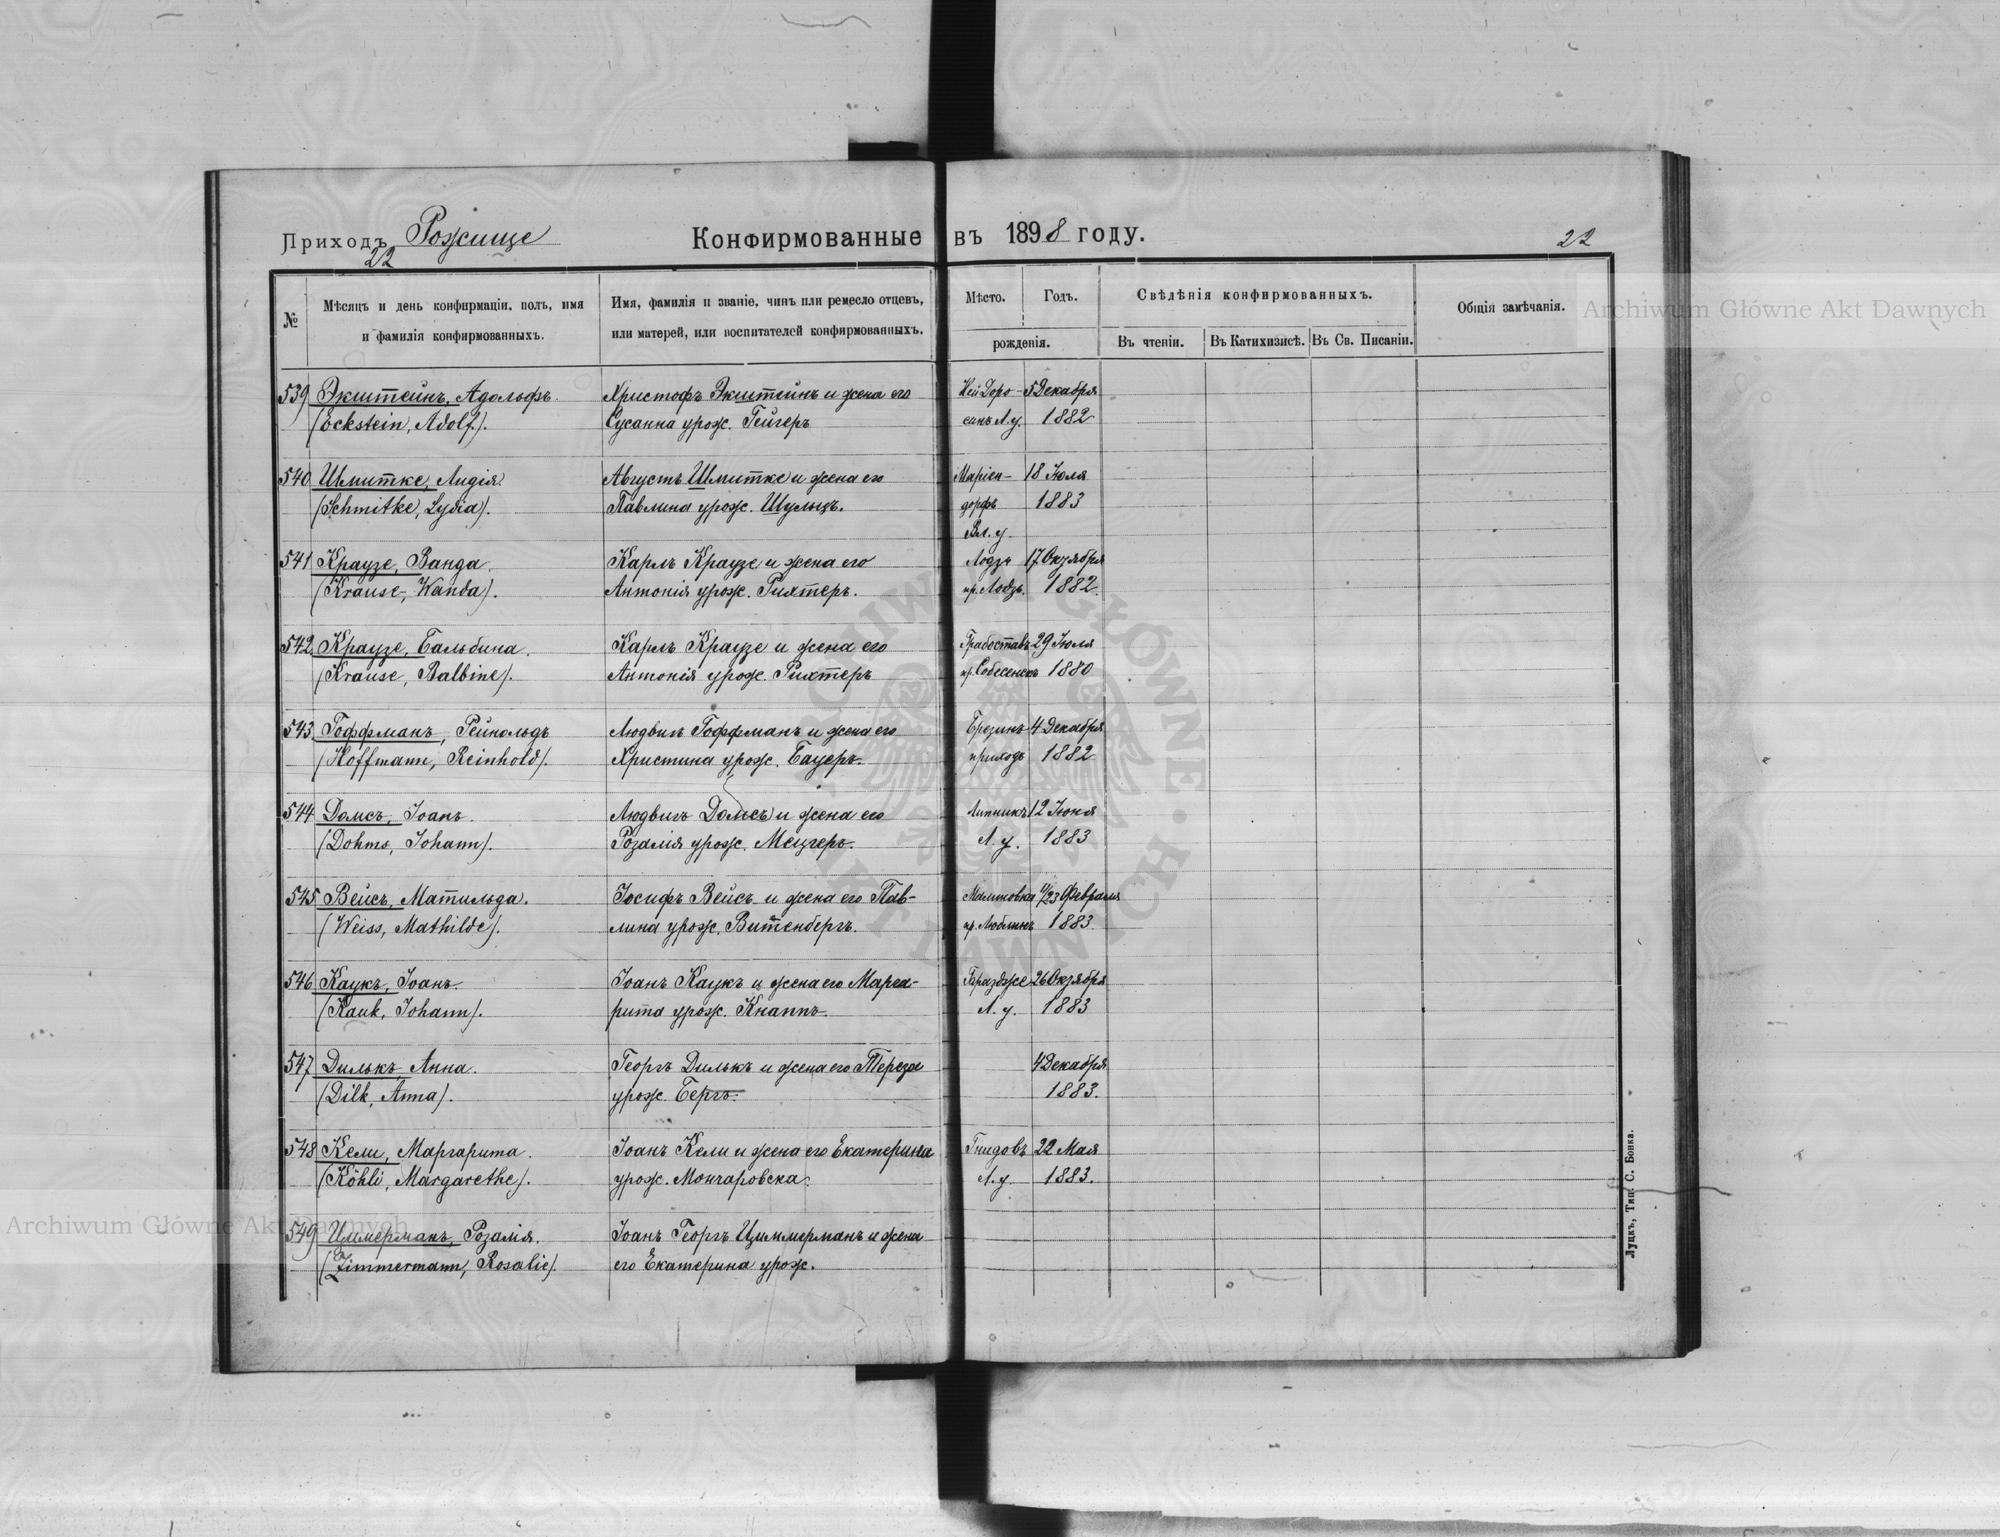 Приходъ Рожище Конфирмованные въ 1898 году. 22
22
№
Мѣсяцъ и день конфирмаціи, полъ, имя
и фамилія конфирмованныхъ.
Имя, фамилія и званіе, чинъ или ремесло отцевъ,
или матерей, или воспитателей конфирмованныхъ.
Мѣсто. Годъ.
рожденія.
Свѣдѣнія конфирмованныхъ.
Въ чтеніи. Въ Катихизисѣ. Въ Св. Писаніи.
Общія замѣчанія.
Archiwum Główne Akt Dawnych
539 Экштейнъ, Адольфъ. Христофъ Экштейнъ и жена его Ней Доро- 5 Декабря
(Eckstein, Adolf). Сусанна урож. Гейгеръ синъ Л. у. 1882
540 Шмитке, Лидія Августъ Шмитке и жена его Маріен- 18 Іюля
(Schmitke, Lydia). Павлина урож. Шульцъ. дорфъ 1883
Вл. у.
541 Краузе, Ванда. Карлъ Краузе и жена его Лодзь 17 Октября
(Krause, Wanda). Антонія урож. Рихтеръ. пр. Лодзь. 1882.
542 Краузе, Бальбина. Карлъ Краузе и жена его Грабоставъ 29 Іюля
(Krause, Balbine). Антонія урож. Рихтеръ пр. Собесенскъ 1880
543 Гоффманъ, Рейнольдъ Людвигъ Гоффманъ и жена его Брезинъ 4 Декабря
(Hoffmann, Reinhold). Христина урож. Бауеръ. приходъ 1882
544 Домсъ, Іоанъ. Людвигъ Домсъ и жена его Липникъ 12 Іюня
(Dohms, Johann). Розалія урож. Мецгеръ. Л. у. 1883
545 Вейсъ, Матильда. Іосифъ Вейсъ и жена его Пав- Малиновка 11/23 Февраля
(Weiss, Mathilde). лина урож. Витенбергъ. пр. Люблинъ 1883.
546 Каукъ, Іоанъ. Іоанъ Каукъ и жена его Марга- Гаразджа 26 Октября
(Kauk, Johann). рита урож. Кнаппъ. Л. у. 1883
547 Дилькъ, Анна. Георгъ Дилькъ и жена его Тереза 4 Декабря
(Dilk, Anna). урож. Бергъ. 1883.
548 Кели, Маргарита. Іоанъ Кели и жена его Екатерина Гнидовъ 22 Мая
(Köhli, Margarethe). урож. Мончаровска. Л. у. 1883.
549 Циммерманъ, Розалія. Іоанъ Георгъ Циммерманъ и жена
(Zimmermann, Rosalie). его Екатерина урож.
Archiwum Główne Akt Dawnych
Луцкъ, Тип. С. Бонка.
ARCHIWUM GŁÓWNE AKT DAWNYCH